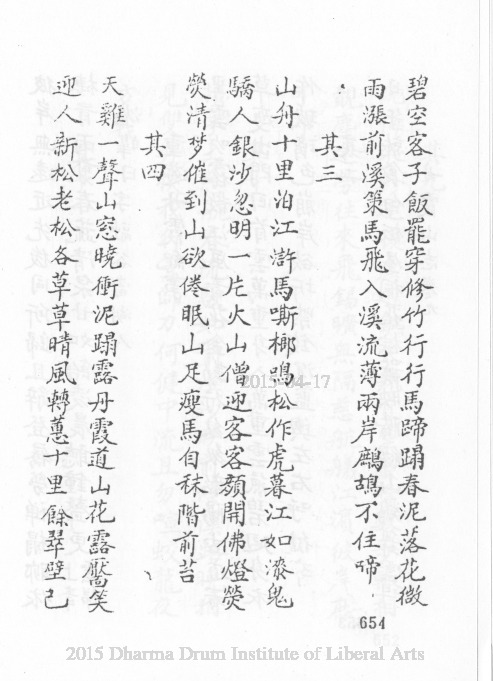 碧空客子飯罷穿修竹行行馬蹄蹋春泥落花微
雨漲前溪策馬飛入溪流薄兩岸鷓鴣不住啼
其三
山舟十里泊江滸馬嘶榔鳴松作虎暮江如潑鬼
驕人銀沙忽明一片火山僧迎客客顏開佛燈熒
熒清梦催到山欲倦眠山足瘦馬自秣階前苔
其四
天雞一聲山窓曉衝泥蹋露丹霞道山花露靨笑
迎人新松老松各草草晴風轉蕙十里餘翠壁己
654
2015-04-17
2015 Dharma Drum Institute of Liberal Arts